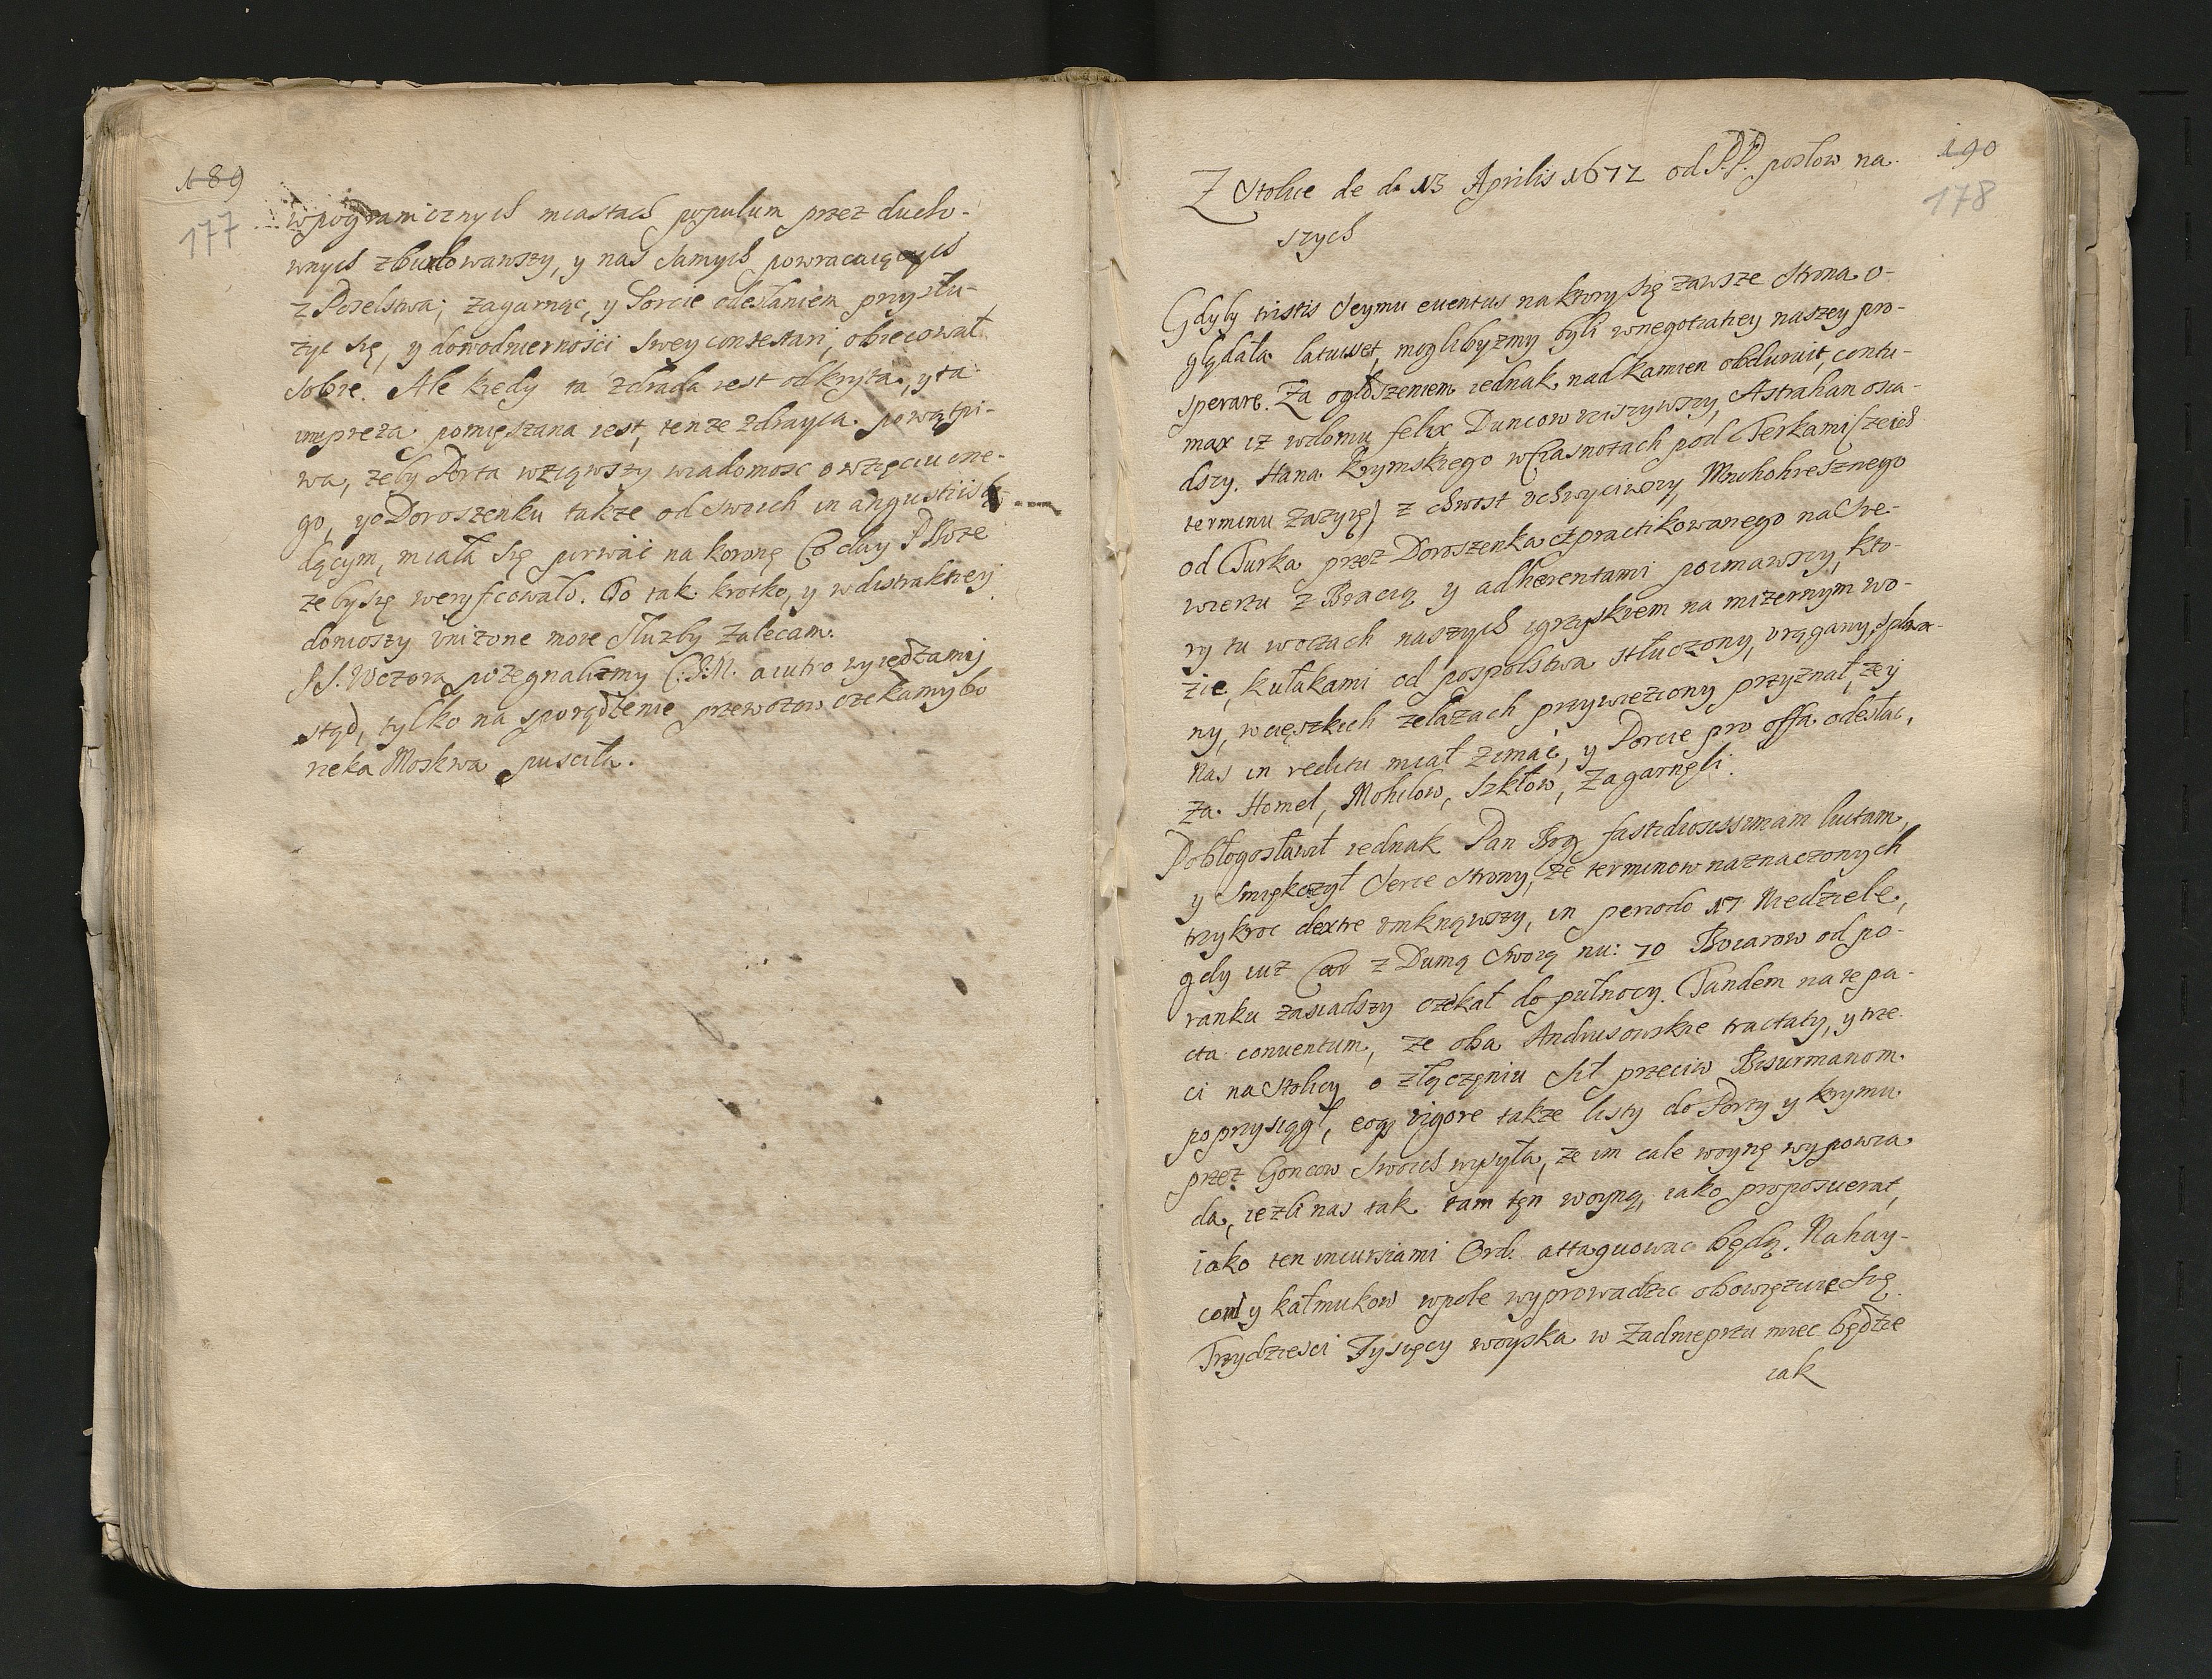 189
177
w pogranicznych miastach populum przezducho-
wnych zbuntowawszy, y nas samych powracaiących
z Poselstwa; zagarnąc, y Porcie odesłaniem przysłu-
zyc się, y dowod wiernosci swey contestari, obiecował
sobie. Ale kiedy ta zdrada iest odkryta, y ta
impreza pomięszana iest, tenze zdrayca powątpi-
wa, zeby Porta wziąwszy wiadomosc o wzięciu one-
go, y o Doroszenku takze od swoich in angustiis bę-
dącym, miała się porwać na koronę Co day P Boze
zeby się weryficowało. To tak krotko, y w distraktiey
doniozszy unizone moie słuzby zalecam.
P S. Wczora pozegnalizmy C: J: M. a iutro wyiedzamy
ztąd, tylko na sporądzenie przewozow czekamy bo
rzeka Moskwa pusciła.
190
178
Z Stolice de d. 13 Aprilis 1672 od P.P. posłow na-
szych
Gdyby tristis Seymu euentus na ktory się zawsze strona o-
glądała latuisset, moglibyzmy byli w negotiatiey naszey pro-
sperare. Za ogłoszeniem iednak, nad kamien obduruit, contu-
max iz w domu felix Duncow zniszywszy, Astrahan osia-
dszy. Hana Krymskiego w Ciasnotach pod Terkami (ze ich
terminu zazyię) z chwost uchwyciwszy, Mnohohresznego
od Turka przez Doroszenka expraktikowanego na Che-
wierzu z Bracią y adherentami poimawszy, kto-
ry tu w oczach naszych igrzyskiem na mizernym wo-
zie, kułakami od pospolstwa stłuczony, urągany, splwa-
ny, w cięszkich zelazach przywieziony przyznał, ze y
nas in reditu miał zimać, y Porcie pro offa odesłac,
za Homel, Mohilow, Szkłow, zagarnęli.
Pobłogosławił iednak Pan Bog fastidiosissimam luctam,
y smiękczył serce strony, ze terminow naznaczonych
trzykroc dextre umknąwszy, in periodo 17 Niedziele,
gdy iuz Car z Dumą swoią nu: 70 Boiarow od po-
ranku zasiadszy czekał do pułnocy. Tandem na te pa-
cta conuentum, ze oba Andrusowskie tractaty, y trze
ci na stolicy o złączęniu sił przeciw Bisurmanom
poprzysiągł, eoq vigore takze listy do Porty y Krymu
przez Goncow swoich wysyła, ze im cale woynę wypowia
da, iezli nas tak tam tęn woyną, iako proposuerat,
iako ten incursiami Ord. attaquowac będą. Nahay-
cow y kałmukow w pole wyprowadzic obowięzuie się.
Trzydziesci Tysięcy woyska w Zadnieprzu miec będzie
iak